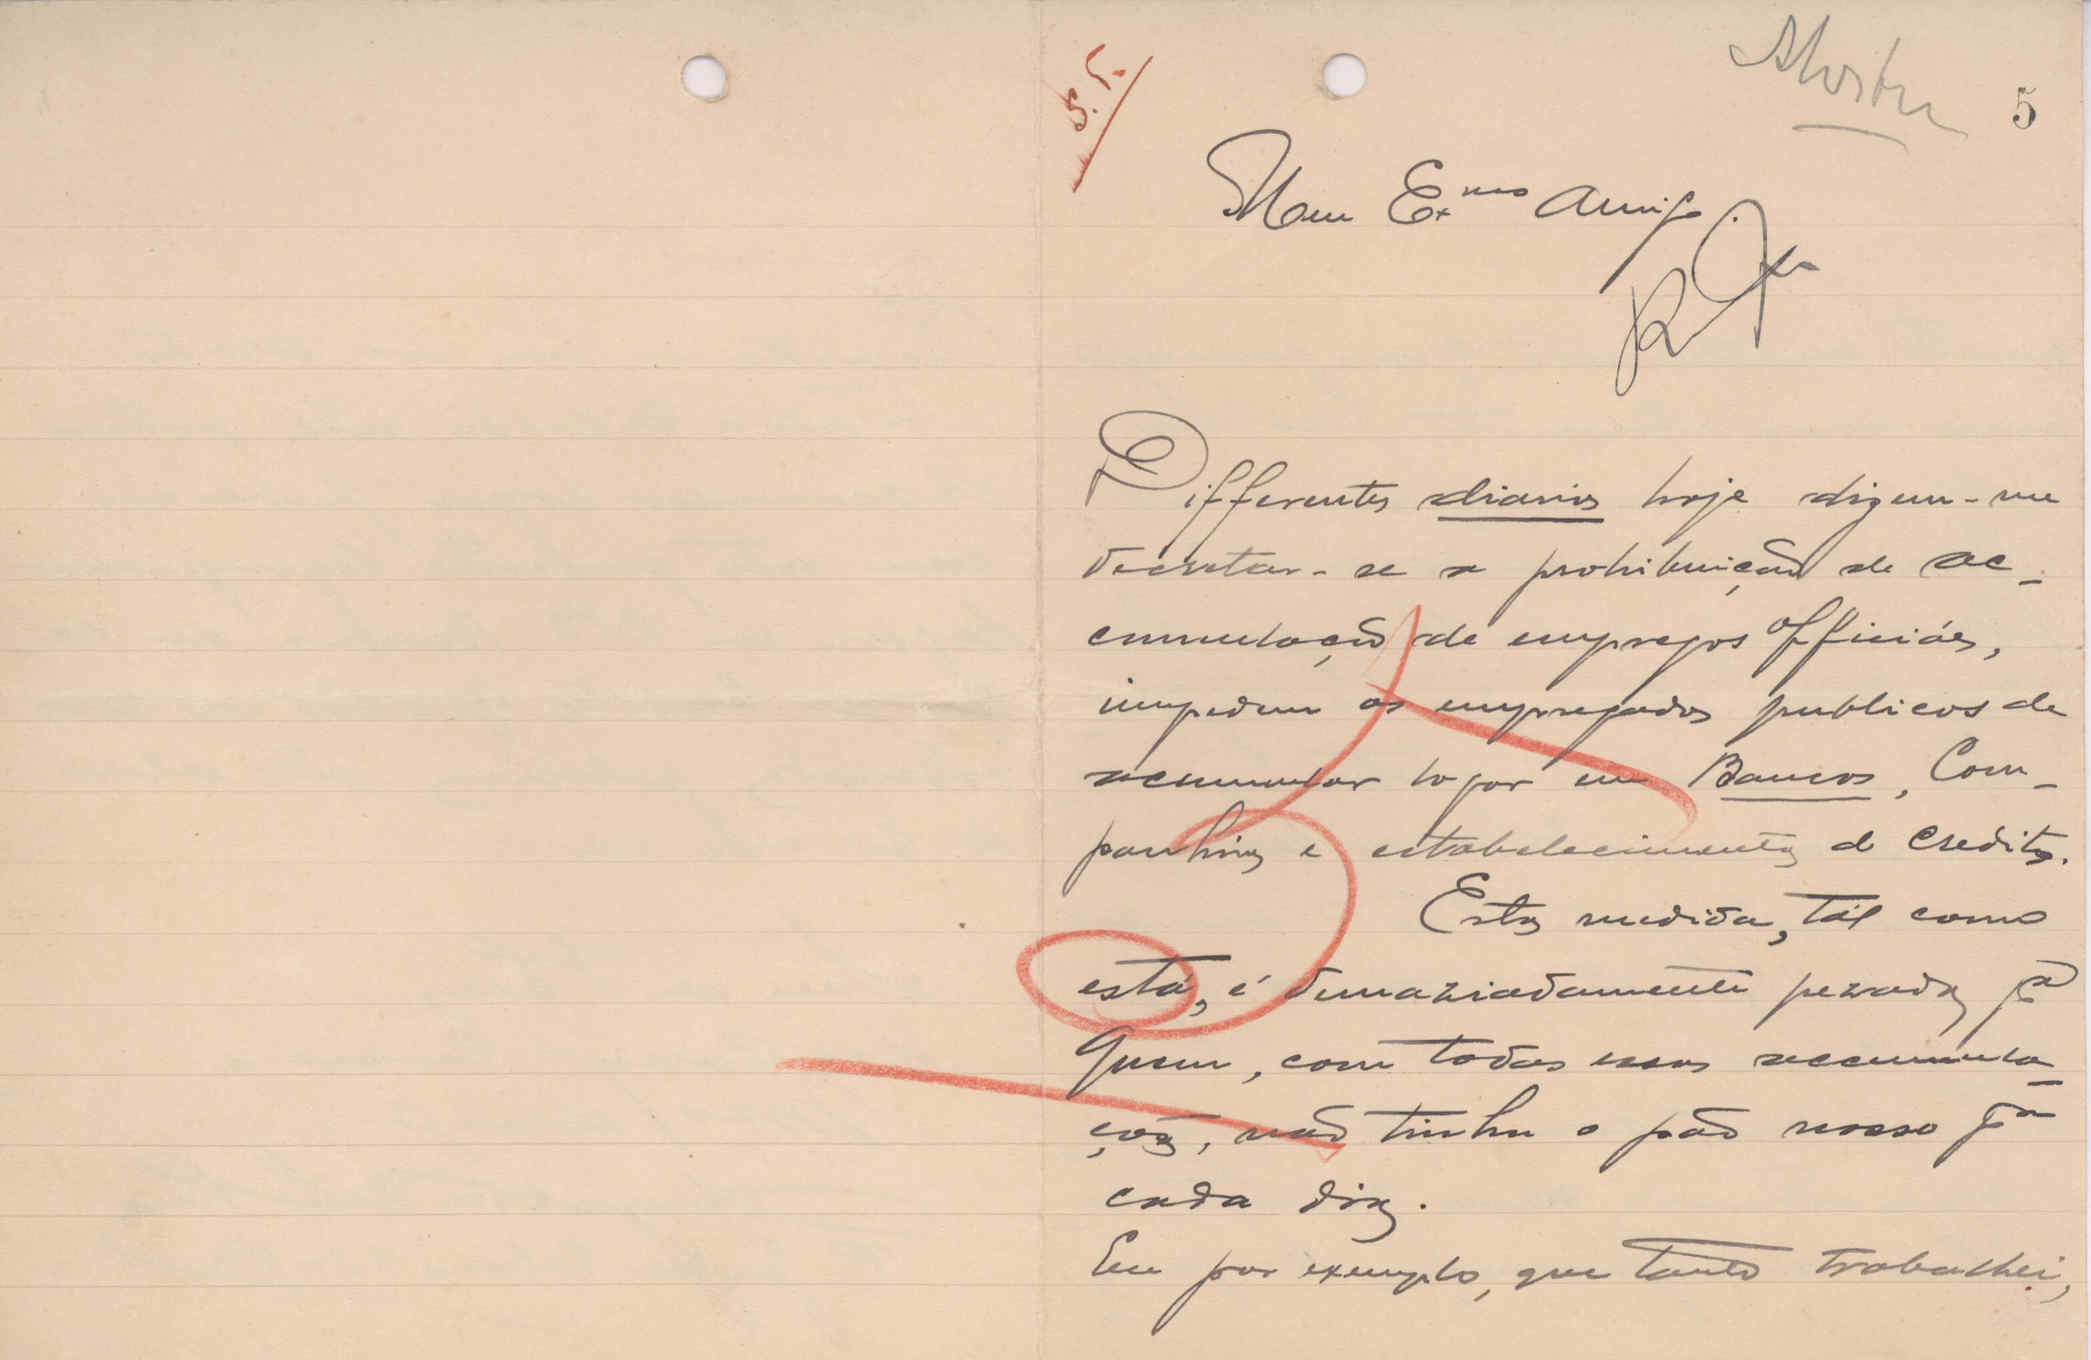 S. T.
5
Meu Exmo Amigo
R
Differentes diarios hoje dizem-me
decretar-se a prohibuição de ac-
cumulação de empregos officiáes,
impedem os empregados publicos de
accumular logar em Bancos, Com-
panhias e estabelecimentos de Credito.
Esta medida, tál como
está, é demaziadamente pezada pa
quem, com todas essas accumula-
ções, não tinha o pão nosso pa
cada dia.
Eu por exemplo, que tanto trabalhei,